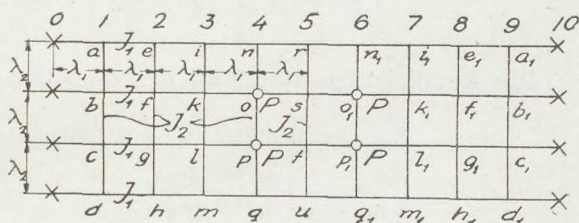 0 1 2 3 4 5 6 7 8 9 10
a J₁ e i n r n₁ i₁ e₁ a₁
λ₂ λ₁ λ₁ λ₁ λ₁ λ₁
b J₁ f k o P s o₁ P k₁ f₁ b₁
λ₂ J₂ J₂
c J₁ g l p P t p₁ P l₁ g₁ c₁
λ₂ J₁
d h m q u q₁ m₁ h₁ d₁